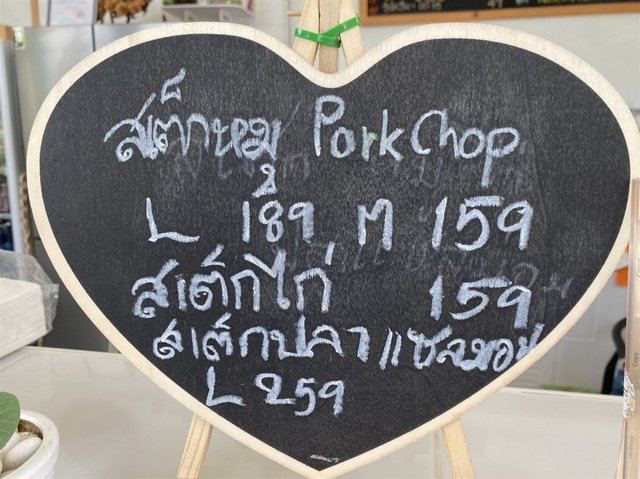 สเต็กหมู Pork Chop
L 189 M 159
สเต็กไก่ 159
สเต็กปลาแซลมอน
L 259